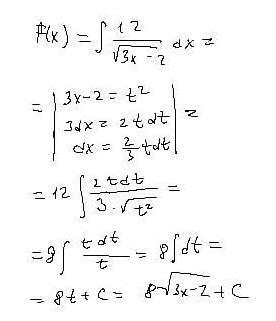 F(x) = ∫ 12/√(3x - 2) dx =
= | 3x-2 = t²
3dx = 2tdt
dx = 2/3 tdt | =
= 12 ∫ 2tdt/(3·√t²) =
= 8∫ tdt/t = 8∫dt =
= 8t + C = 8√(3x-2) + C